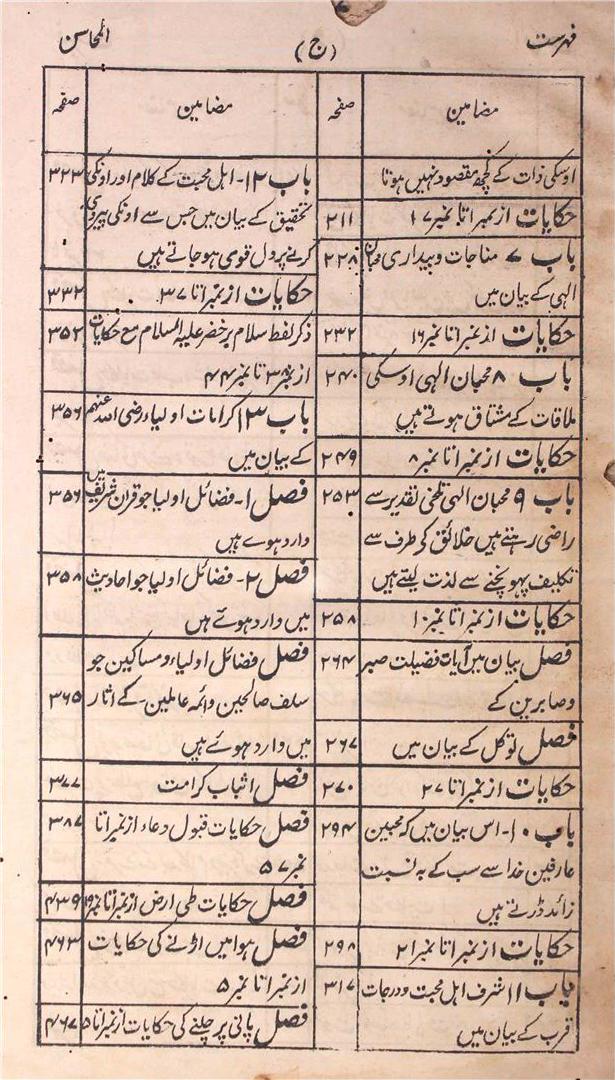 فہرست (ج) المحاسن
مضامین صفحہ
اوسکی ذات کے کچھ مقصود نہیں ہوتا
حکایات از نمبر ۱ تا نمبر ۱۷ ۲۱۱
باب ۷ مناجات و بیداری محبان ۲۲۸
الہی کے بیان میں
حکایات از نمبر ۱ تا نمبر ۱۶ ۲۳۲
باب ۸ محبان الہی اوسکی ۲۴۰
ملاقات کے مشتاق ہوتے ہیں
حکایات از نمبر ۱ تا نمبر ۸ ۲۴۹
باب ۹ محبان الہی تلخی تقدیر سے ۲۵۳
راضی رہتے ہیں خلائق کی طرف سے
تکلیف پہونچنے سے لذت لیتے ہیں
حکایات از نمبر ۱ تا نمبر ۱۰ ۲۵۸
فصل بیان میں آیات فضیلت صبر ۲۶۴
و صابرین کے
فصل توکل کے بیان میں ۲۶۷
حکایات از نمبر ۱ تا ۲۷ ۲۷۰
باب ۱۰- اس بیان میں کہ محبین ۲۹۴
عارفین خدا سے سب کے بہ نسبت
زائد ڈرتے ہیں
حکایات از نمبر ۱ تا نمبر ۲۱ ۲۹۸
باب ۱۱ شرف اہل محبت و درجات ۳۱۷
قرب کے بیان میں
مضامین صفحہ
باب ۱۲- اہل محبت کے کلام اور اونکی ۳۲۳
تحقیق کے بیان میں جس سے اونکی پیروی
کرنے پر دل قوی ہو جاتے ہیں
حکایات از نمبر ۱ تا ۳۷ ۳۳۲
ذکر لفظ سلام بر خضر علیہ السلام مع حکایات ۳۵۲
از نمبر ۳۸ تا نمبر ۴۴
باب ۱۳ کرامات اولیاء رضی اللہ عنہم ۳۵۶
کے بیان میں
فصل ۱- فضائل اولیا جو قرآن شریف میں ۳۵۶
وارد ہوے ہیں
فصل ۲- فضائل اولیا جو احادیث ۳۵۸
میں وارد ہوئے ہیں
فصل فضائل اولیاء و مساکین جو
سلف صالحین وائمہ عاملین کے اثار ۳۶۵
میں وارد ہوئے ہیں
فصل اثبات کرامت ۳۷۷
فصل حکایات قبول دعاء از نمبر ۱ تا ۳۸۷
نمبر ۵۷
فصل حکایات طی ارض از نمبر ۱ تا نمبر ۱۹ ۴۳۹
فصل ہوا میں اڑنے کی حکایات ۴۶۳
از نمبر ۱ تا نمبر ۵
فصل پانی پر چلنے کی حکایات از نمبر ۱ تا ۵ ۴۶۷